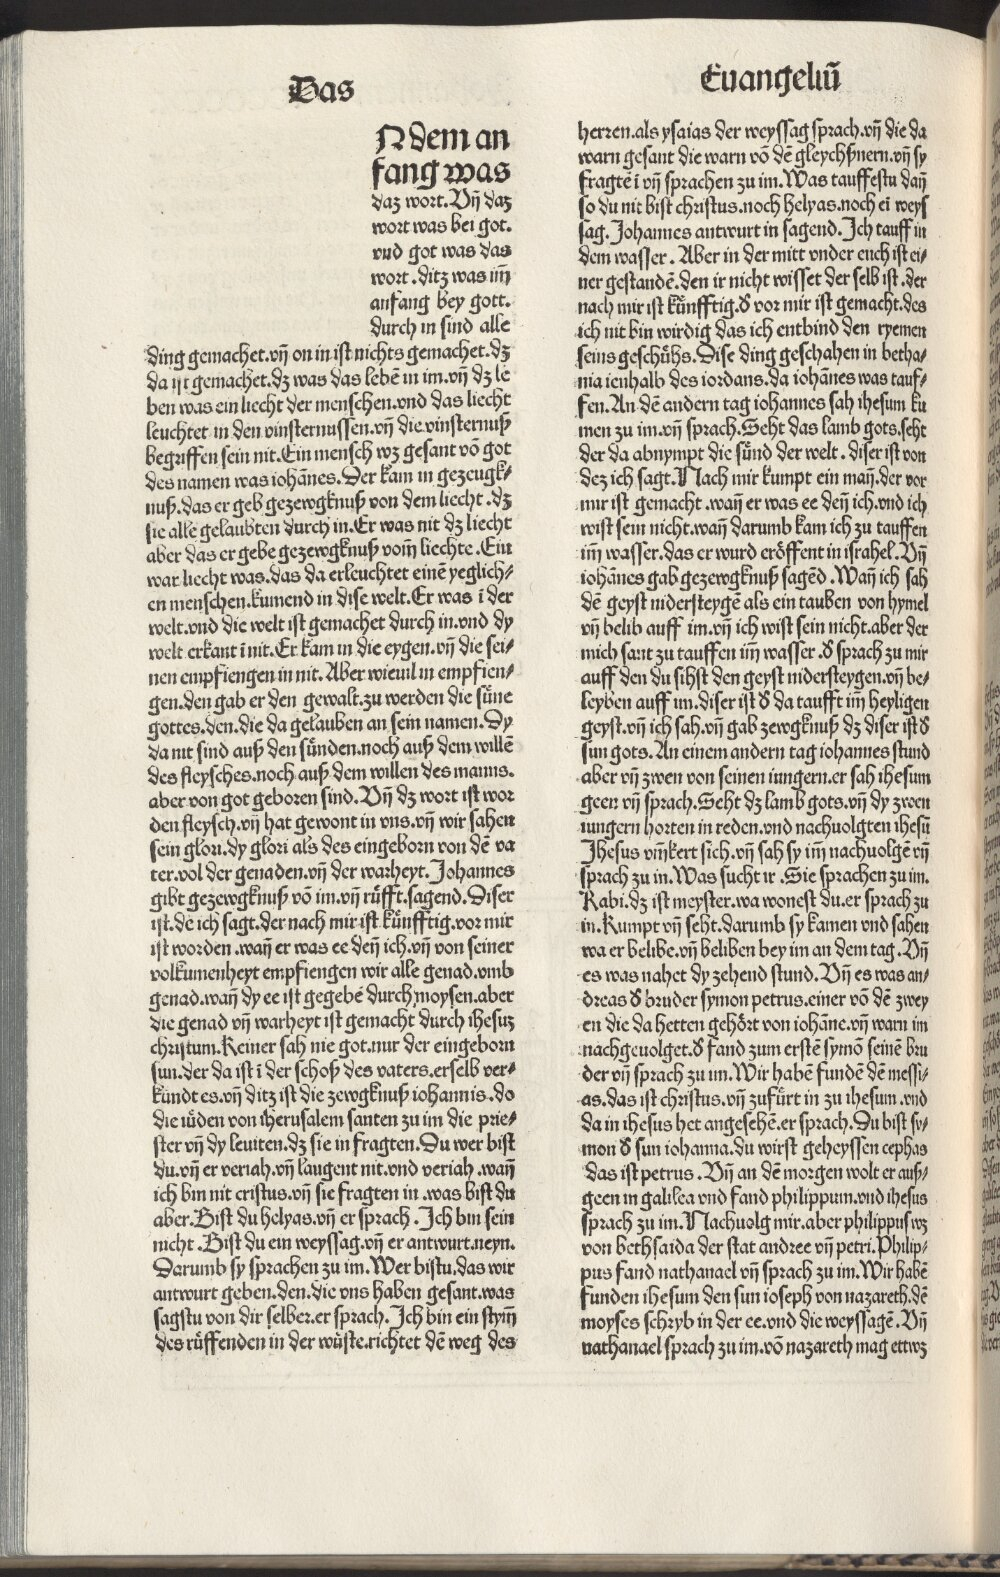 Das
Euangeliū
N dem an
fang was
daz wort. Vñ daz
wort was bei got.
vnd got was das
wort. ditz was im̄
anfang bey gott.
durch in sind alle
ding gemachet. vñ on in ist nichts gemachet. dz
da ist gemachet. dz was das lebē in im. vñ dz le
ben was ein liecht der menschen. vnd das liecht
leuchtet in den vinsternussen. vñ die vinsternuß
begriffen sein nit. Ein mensch wz gesant vō got
des namen was iohānes. Der kam in gezeugk-
nuß. das er geb gezewgknuß von dem liecht. dz
sie alle gelaubten durch in. Er was nit dz liecht
aber das er gebe gezewgknuß vom̄ liechte. Ein
war liecht was. das da erleuchtet einē yeglich-
en menschen. kumend in dise welt. Er was ī der
welt. vnd die welt ist gemachet durch in. vnd dy
welt erkant ī nit. Er kam in die eygen. vñ die sei-
nen empfiengen in nit. Aber wieuil in empfien-
gen. den gab er den gewalt. zu werden die süne
gottes. den. die da gelauben an sein namen. Dy
da nit sind auß den sünden. noch auß dem willē
des fleysches. noch auß dem willen des manns.
aber von got geboren sind. Vñ dz wort ist wor
den fleysch. vñ hat gewont in vns. vñ wir sahen
sein glori. dy glori als des eingeborn von dē va
ter. vol der genaden. vñ der warheyt. Johannes
gibt gezewgknuß vō im. vñ rüfft. sagend. Diser
ist. dē ich sagt. der nach mir ist künfftig. vor mir
ist worden. wañ er was ee deñ ich. vñ von seiner
volkumenheyt empfiengen wir alle genad. vmb
genad. wañ dy ee ist gegebē durch moysen. aber
die genad vñ warheyt ist gemacht durch ihesuz
christum. Keiner sah nie got. nur der eingeborn
sun. der da ist ī der schoß des vaters. er selb ver-
kündt es. vñ ditz ist die zewgknuß iohannis. do
die iüden von iherusalem santen zu im die prie-
ster vñ dy leuiten. dz sie in fragten. Du wer bist
du. vñ er veriah. vñ laugent nit. vnd veriah. wañ
ich bin nit cristus. vñ sie fragten in. was bist du
aber. Bist du helyas. vñ er sprach. Ich bin sein
nicht. Bist du ein weyssag. vñ er antwurt. neyn.
Darumb sy sprachen zu im. Wer bistu. das wir
antwurt geben. den. die vns haben gesant. was
sagstu von dir selber. er sprach. Ich bin ein stym̄
des rüffenden in der wüste. richtet dē weg des
herren. als ysaias der weyssag sprach. vñ die da
warn gesant die warn vō dē gleychßnern. vñ sy
fragtē ī vñ sprachen zu im. Was tauffestu dañ
so du nit bist christus. noch helyas. noch eī weys
sag. Johannes antwurt in sagend. Ich tauff in
dem wasser. Aber in der mitt vnder euch ist ei-
ner gestandē. den ir nicht wisset der selb ist. der
nach mir ist künfftig. ď vor mir ist gemacht. des
ich nit bin wirdig das ich entbind den ryemen
seins geschühs. Dise ding geschahen in betha-
nia ienhalb des iordans. da iohānes was tauf-
fen. An dē andern tag iohannes sah ihesum ku
men zu im. vñ sprach. Seht das lamb gots. seht
der da abnympt die sünd der welt. diser ist von
dez ich sagt. Nach mir kumpt ein mañ. der vor
mir ist gemacht. wañ er was ee deñ ich. vnd ich
wist sein nicht. wañ darumb kam ich zu tauffen
im̄ wasser. das er wurd eröffent in israhel. Vñ
iohānes gab gezewgknuß sagēd. Wañ ich sah
dē geyst nidersteygē als ein tauben von hymel
vñ belib auff im. vñ ich wist sein nicht. aber der
mich sant zu tauffen im̄ wasser. ď sprach zu mir
auff den du sihst den geyst nidersteygen. vñ be-
leyben auff im. diser ist ď da taufft im̄ heyligen
geyst. vñ ich sah. vñ gab zewgknuß dz diser ist ď
sun gots. An einem andern tag iohannes stund
aber vñ zwen von seinen iungern. er sah ihesum
geen vñ sprach. Seht dz lamb gots. vñ dy zwen
iungern horten in reden. vnd nachuolgten ihesū
Jhesus vm̄kert sich. vñ sah sy im̄ nachuolgē vñ
sprach zu in. Was sucht ir. Sie sprachen zu im.
Rabi. dz ist meyster. wa wonest du. er sprach zu
in. Kumpt vñ seht. darumb sy kamen vnd sahen
wa er belibe. vñ beliben bey im an dem tag. Vñ
es was nahet dy zehend stund. Vñ es was an-
dreas ď bruder symon petrus. einer vō dē zwey
en die da hetten gehört von iohāne. vñ warn im
nachgeuolget. ď fand zum erstē symō seinē bru
der vñ sprach zu im. Wir habē fundē dē messi-
as. das ist christus. vñ zufürt in zu ihesum. vnd
da in ihesus het angesehē. er sprach. Du bist sy-
mon ď sun iohanna. du wirst geheyssen cephas
das ist petrus. Vñ an dē morgen wolt er auß-
geen in galilea vnd fand philippum. vnd ihesus
sprach zu im. Nachuolg mir. aber philippus wz
von bethsaida der stat andree vñ petri. Philip-
pus fand nathanael vñ sprach zu im. Wir habē
funden ihesum den sun ioseph von nazareth. dē
moyses schryb in der ee. vnd die weyssagē. Vñ
nathanael sprach zu im. vō nazareth mag ettwz